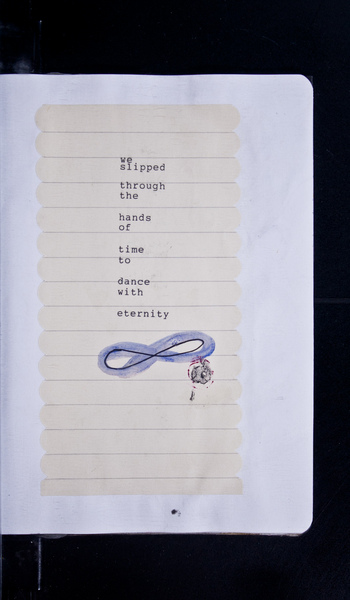 we
slipped
through
the
hands
of
time
to
dance
with
eternity